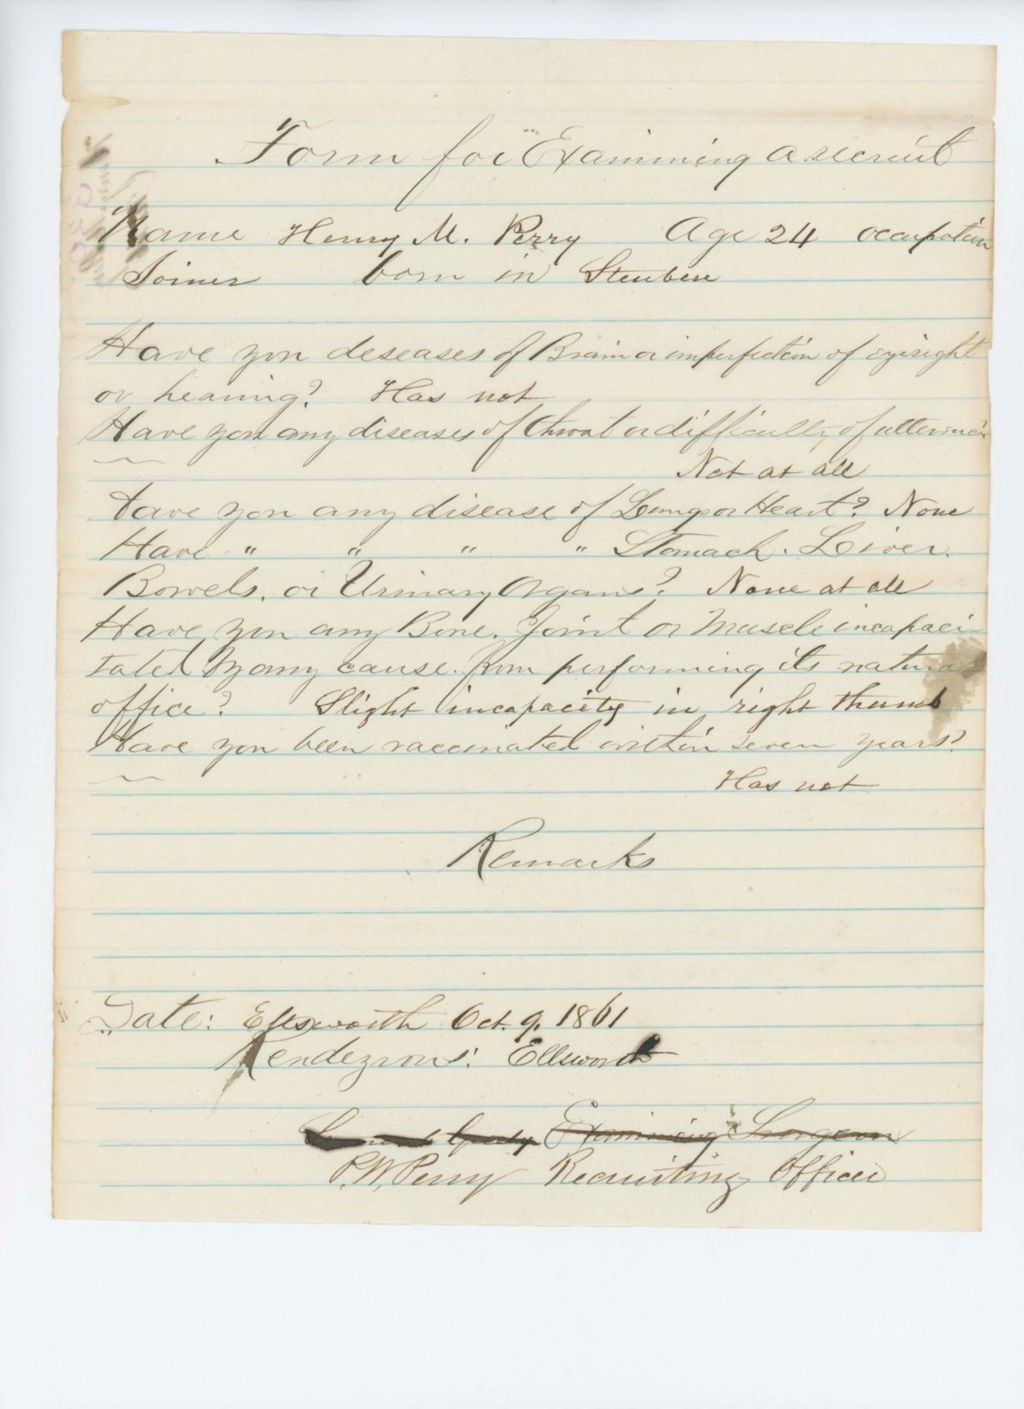 Form for Examining a recruit
Name Henry M. Perry Age 24 occupation
Joiner born in Steuben
Have you deseases of Brain or imperfection of eyesight
or hearing? Has not
Have you any diseases of throat or difficulty of utterance
Not at all
Have you any disease of Lungs or Heart? None
Have " " " " Stomach. Liver.
Bowels. or Urinary Organs? None at all
Have you any Bone. Joint or Muscle incapaci
tated by any cause from performing its natural
office? Slight incapacity in right thumb
Have you been vaccinated within seven years?
Has not
Remarks
Date: Ellsworth Oct. 9. 1861
Rendezvous: Ellsworth
Examining Surgeon
P.W. Perry Recruiting Officer